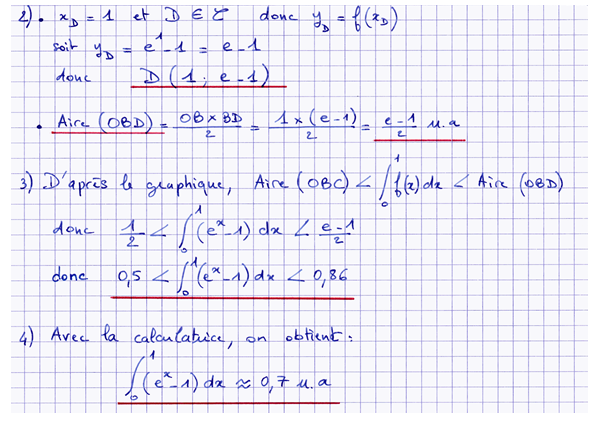 2) • x_D = 1 et D ∈ 𝒞 donc y_D = f(x_D)
soit y_D = e^1 - 1 = e - 1
donc D(1; e-1)
• Aire (OBD) = OB × BD / 2 = 1 × (e-1) / 2 = e-1 / 2 u.a
3) D'après le graphique, Aire (OBC) < ∫_0^1 f(x) dx < Aire (OBD)
donc 1/2 < ∫_0^1 (e^x - 1) dx < e-1 / 2
donc 0,5 < ∫_0^1 (e^x - 1) dx < 0,86
4) Avec la calculatrice, on obtient :
∫_0^1 (e^x - 1) dx ≈ 0,7 u.a